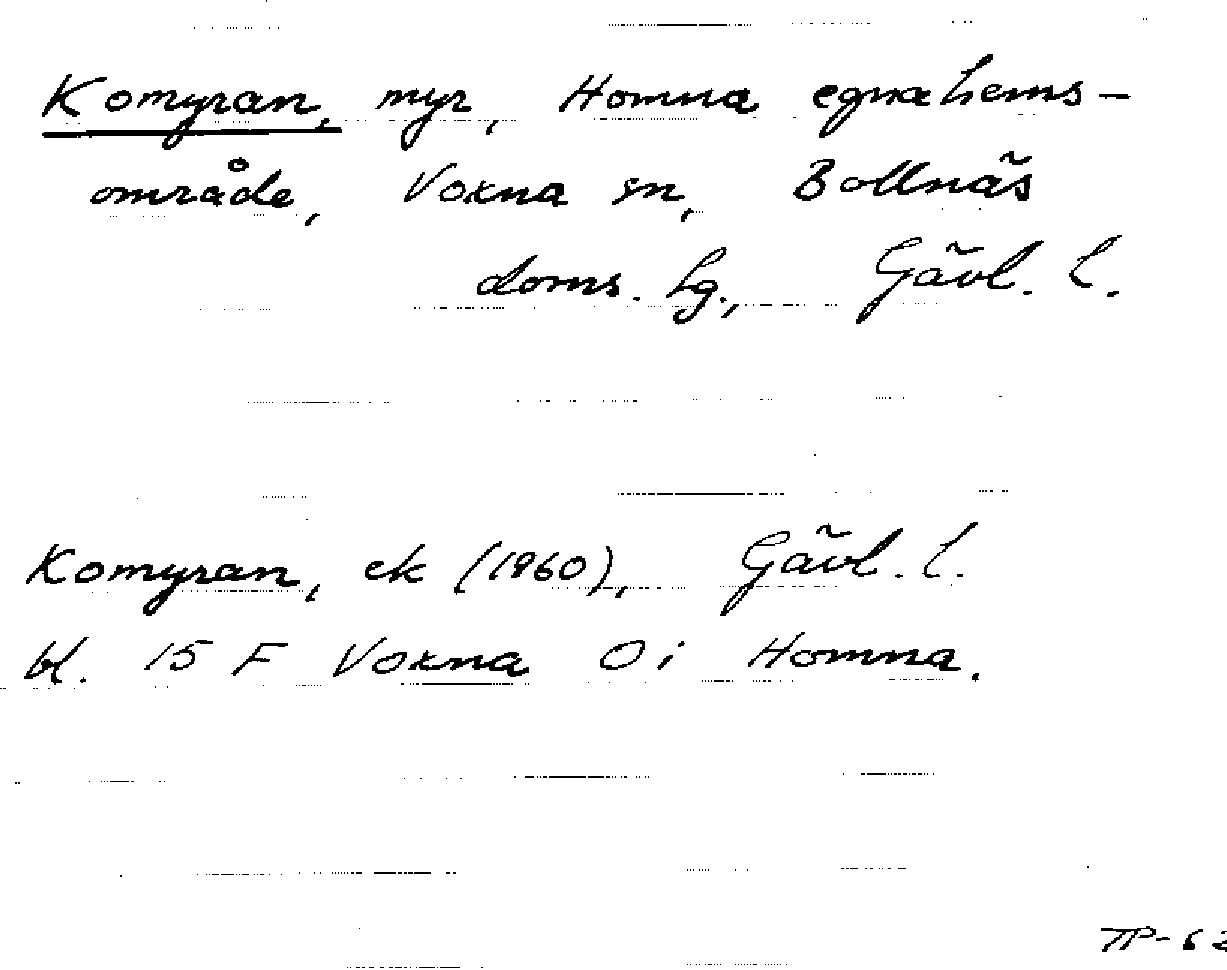 Komyran, myr, Homna egnahems-
område, Voxna sn, Bollnäs
doms. hg., Gävl. l.
Komyran, ek (1960), Gävl. l.
bl. 15 F Voxna O i Homna.